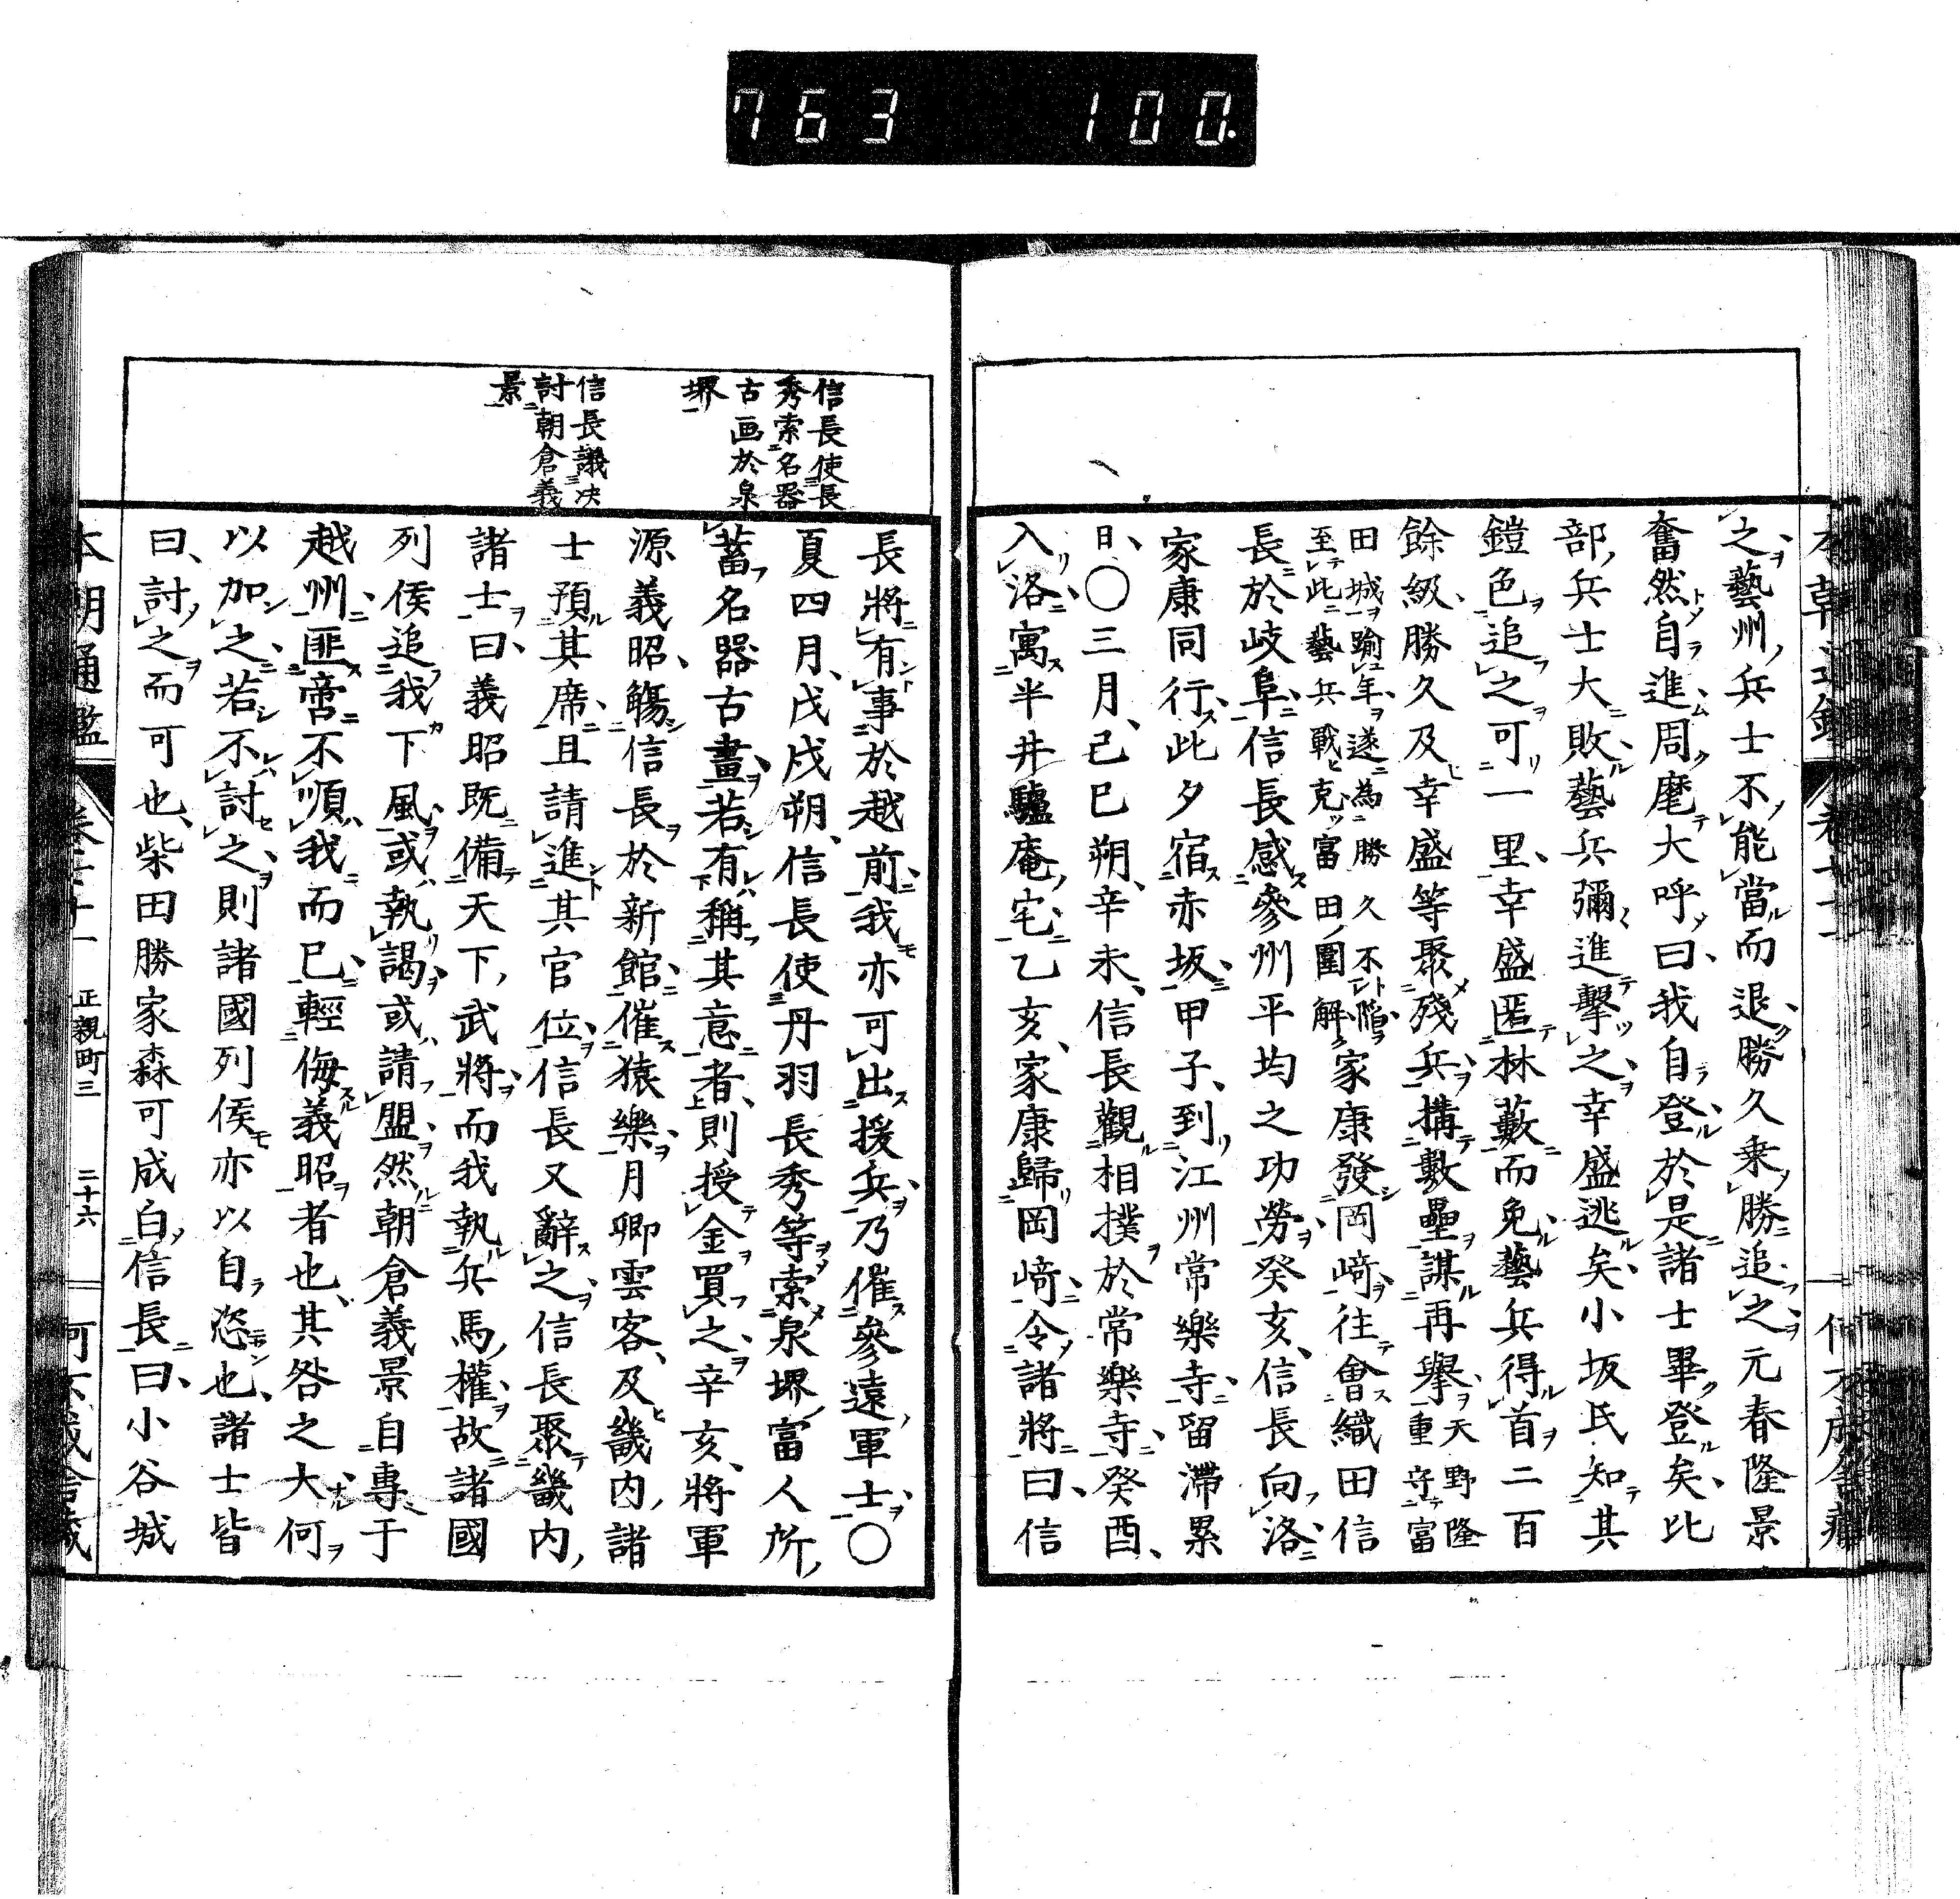 763 100.
之藝州兵士不能當而退勝久乗勝追之元春隆景
奮然自進周麾大呼曰我自登於是諸士畢登矣此
部兵士大敗藝兵彌進擊之幸盛逃矣小坂氏知其
鎧色追之可一里幸盛匿林藪而免藝兵得首二百
餘級勝久及幸盛等聚殘兵構數壘謀再擧天野隆
重守富
田城踰年遂為勝久不陥
至此藝兵戰克富田圍解
家康發岡﨑往會織田信
長於岐阜信長感參州平均之功勞癸亥信長向洛
家康同行此夕宿赤坂甲子到江州常樂寺留滯累
日〇三月己巳朔辛未信長觀相撲於常樂寺癸酉
入洛寓半井驢庵宅乙亥家康歸岡﨑令諸將曰信
信長使長
秀索名器
古画於泉
堺
信長議决
討朝倉義
景
長將有事於越前我亦可出援兵乃催參遠軍士〇
夏四月戊戌朔信長使丹羽長秀等索泉堺富人所
蓄名器古畫若有稱其意者則授金買之辛亥將軍
源義昭觴信長於新館催猿樂月卿雲客及畿内諸
士預其席且請進其官位信長又辭之信長聚畿内
諸士曰義昭既備天下武將而我執兵馬權故諸國
列侯追我下風或執謁或請盟然朝倉義景自專于
越州匪啻不順我而已輕侮義昭者也其咎之大何
以加之若不討之則諸國列侯亦以自恣也諸士皆
曰討之而可也柴田勝家森可成白信長曰小谷城
本朝通鑑
正親町三
二十六